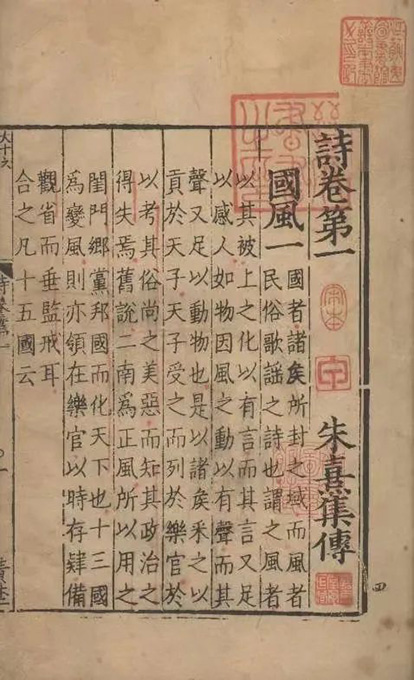 詩卷第一
朱熹集傳
國風一
國者諸矦所封之域而風者
民俗歌謡之詩也謂之風者
以其被上之化以有言而其言又足
以感人如物因風之動以有聲而其
聲又足以動物也是以諸矦采之以
貢於天子天子受之而列於樂官於
以考其俗尚之美惡而知其政治之
得失焉舊說二南爲正風所以用之
閨門鄉黨邦國而化天下也十三國
爲變風則亦領在樂官以時存肄備
觀省而垂監戒耳
合之凡十五國云